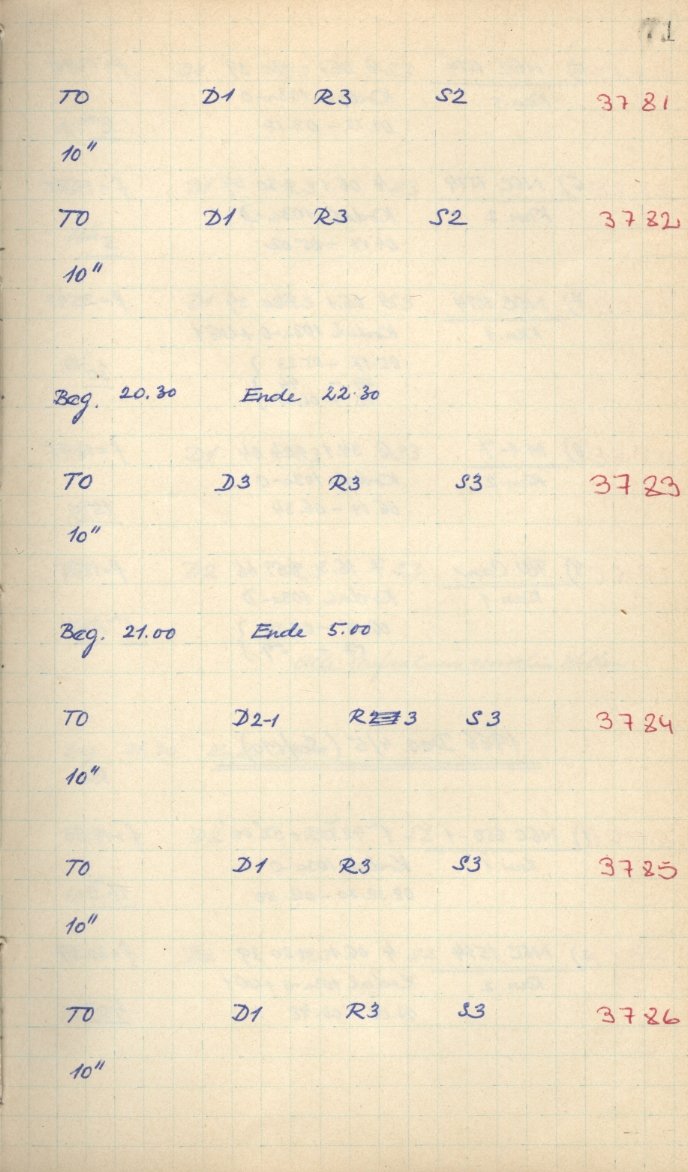 71
TO D1 R3 S2 3781
10"
TO D1 R3 S2 3782
10"
Beg. 20.30 Ende 22.30
TO D3 R3 S3 3783
10"
Beg. 21.00 Ende 5.00
TO D2-1 R3 S3 3784
10"
TO D1 R3 S3 3785
10"
TO D1 R3 S3 3786
10"